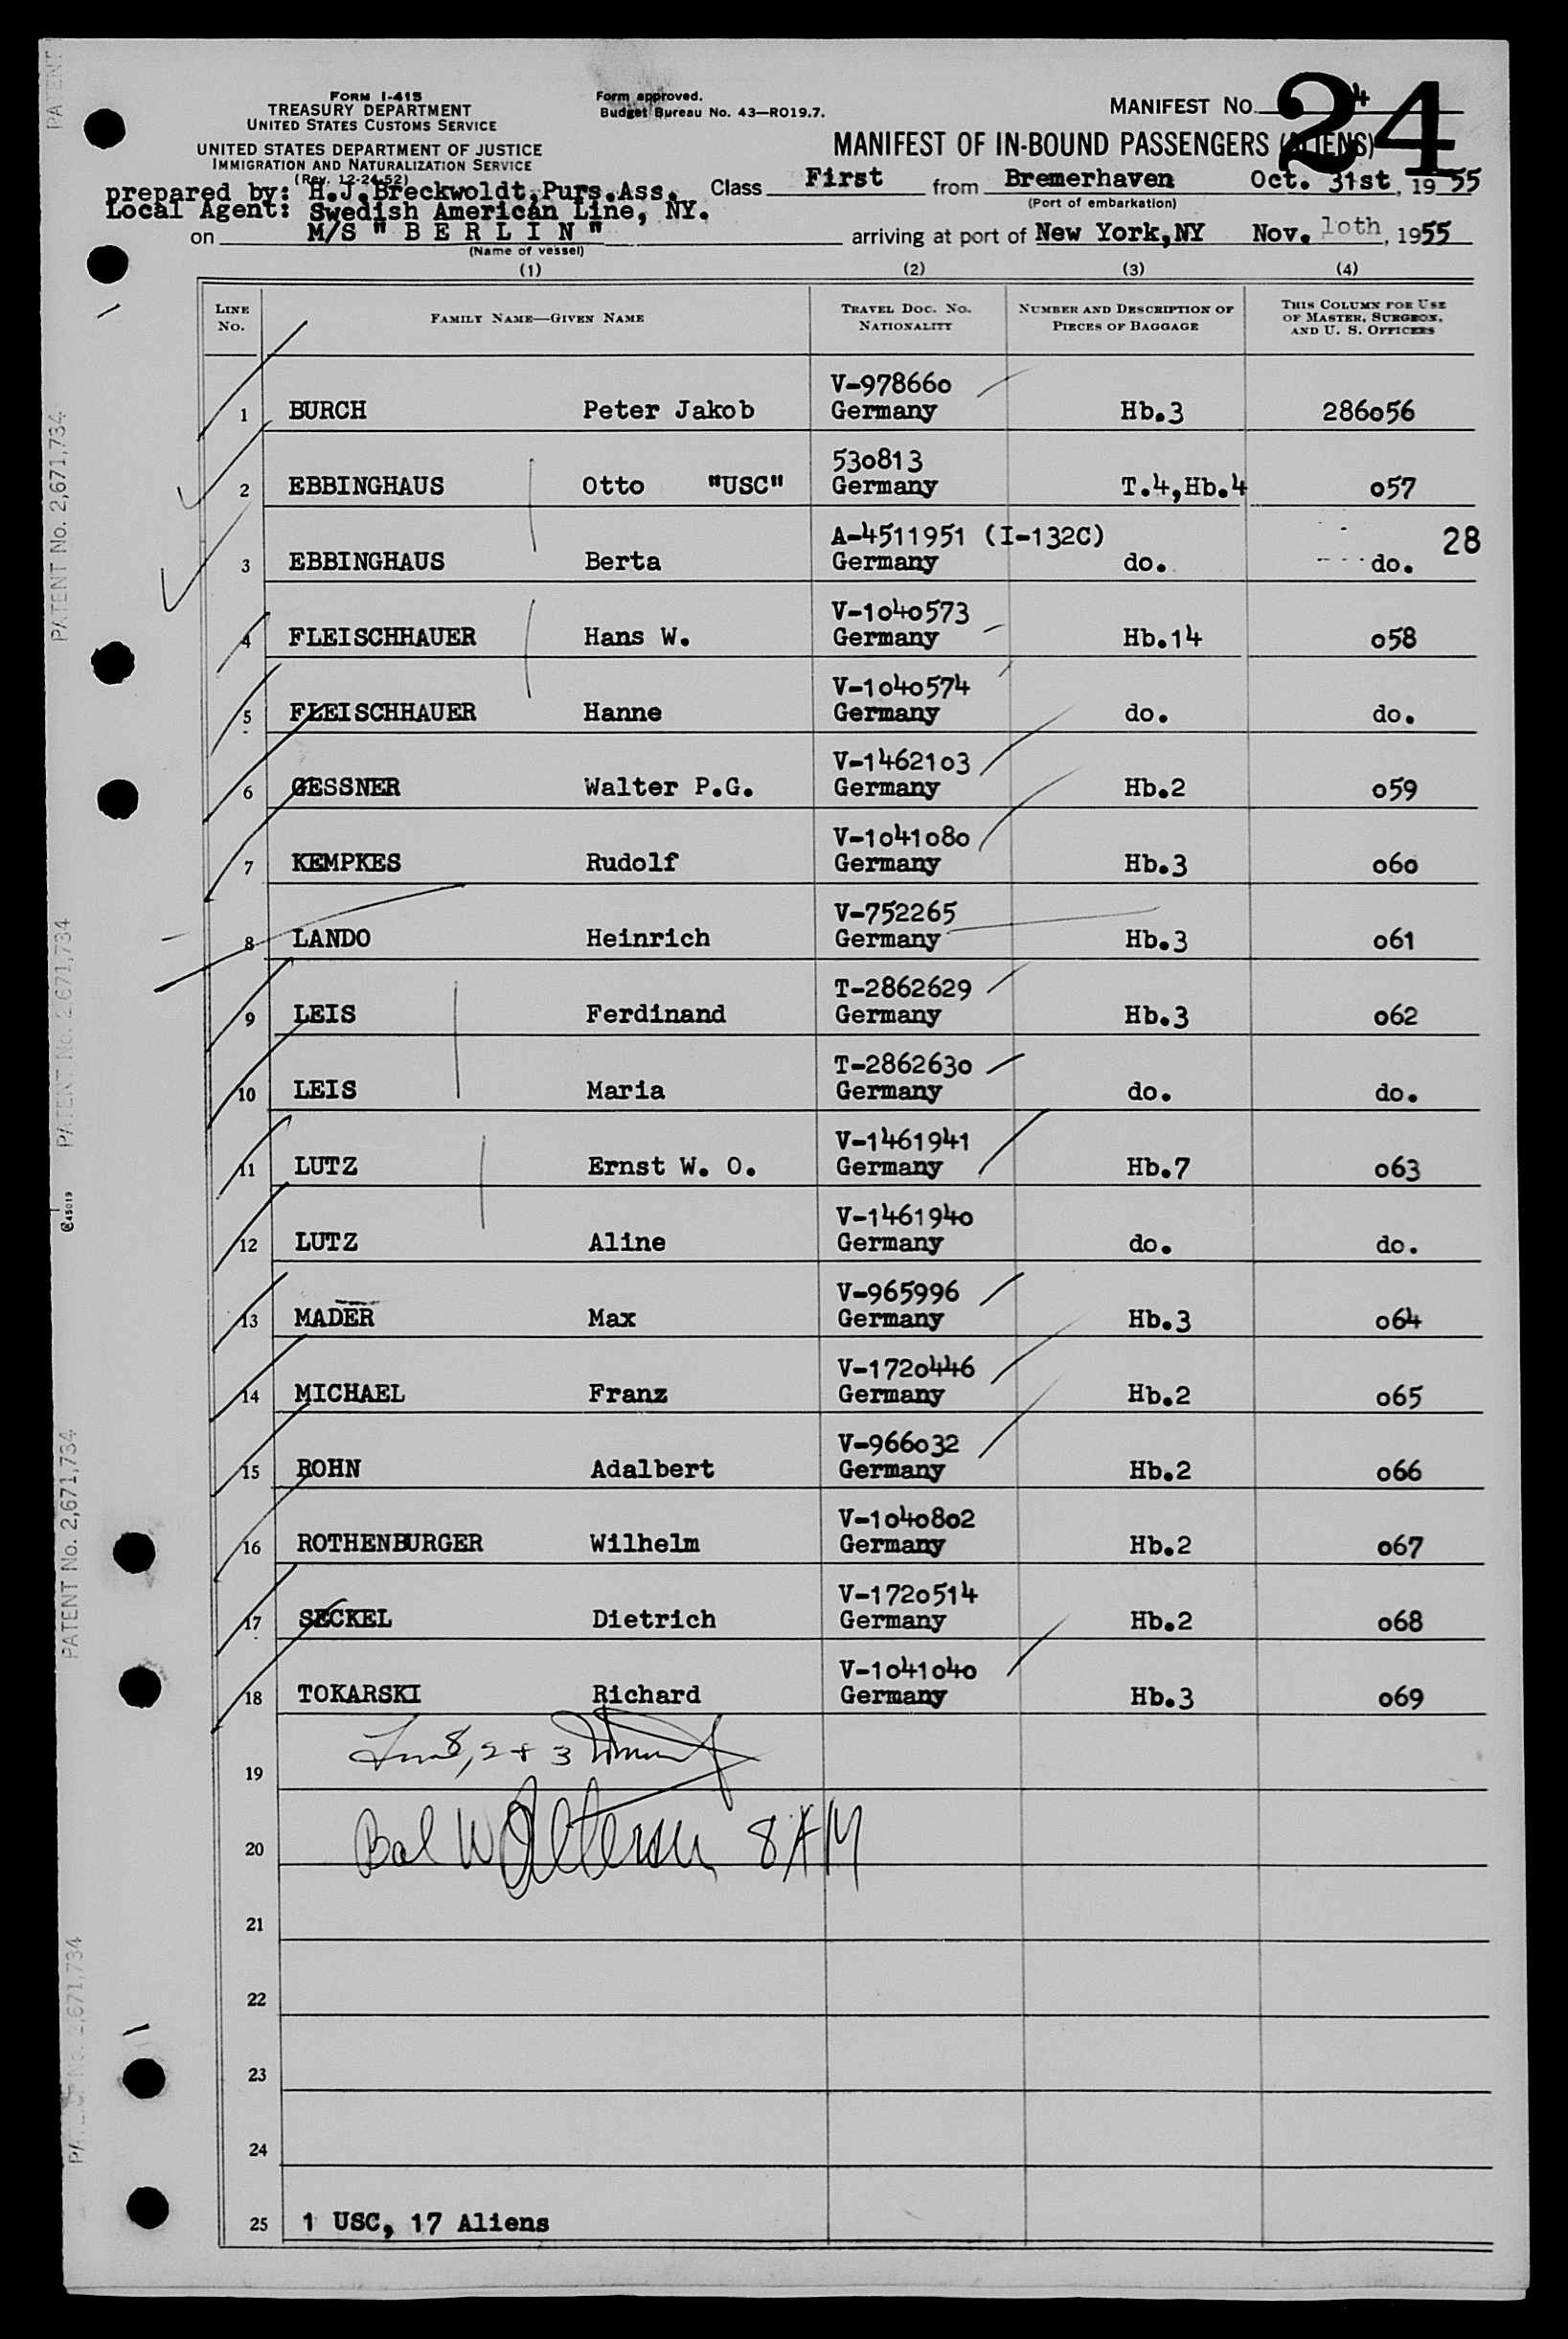 FORM I-415
TREASURY DEPARTMENT
UNITED STATES CUSTOMS SERVICE
UNITED STATES DEPARTMENT OF JUSTICE
IMMIGRATION AND NATURALIZATION SERVICE
(Rev. 12-24-52)
Form approved.
Budget Bureau No. 43—RO19.7.
MANIFEST NO. 4
24
MANIFEST OF IN-BOUND PASSENGERS (ALIENS)
prepared by: H.J.Breckwoldt,Purs.Ass. Class First from Bremerhaven Oct. 31st, 1955
(Port of embarkation)
Local Agent: Swedish American Line, NY.
on M/S " B E R L I N " arriving at port of New York,NY Nov. 1oth, 1955
(Name of vessel)
(1) (2) (3) (4)
LINE No. FAMILY NAME—GIVEN NAME TRAVEL DOC. NO. NATIONALITY NUMBER AND DESCRIPTION OF PIECES OF BAGGAGE THIS COLUMN FOR USE OF MASTER, SURGEON, AND U. S. OFFICERS
V-97866o
1 BURCH Peter Jakob Germany Hb.3 286o56
53o813
2 EBBINGHAUS Otto "USC" Germany T.4,Hb.4 o57
A-4511951 (I-132C) 28
3 EBBINGHAUS Berta Germany do. do.
V-1o4o573
4 FLEISCHHAUER Hans W. Germany Hb.14 o58
V-1o4o574
5 FLEISCHHAUER Hanne Germany do. do.
V-14621o3
6 GESSNER Walter P.G. Germany Hb.2 o59
V-1o41o8o
7 KEMPKES Rudolf Germany Hb.3 o6o
V-752265
8 LANDO Heinrich Germany Hb.3 o61
T-2862629
9 LEIS Ferdinand Germany Hb.3 o62
T-286263o
10 LEIS Maria Germany do. do.
V-1461941
11 LUTZ Ernst W. O. Germany Hb.7 o63
V-146194o
12 LUTZ Aline Germany do. do.
V-965996
13 MADER Max Germany Hb.3 o64
V-172o446
14 MICHAEL Franz Germany Hb.2 o65
V-966o32
15 ROHN Adalbert Germany Hb.2 o66
V-1o4o8o2
16 ROTHENBURGER Wilhelm Germany Hb.2 o67
V-172o514
17 SECKEL Dietrich Germany Hb.2 o68
V-1o41o4o
18 TOKARSKI Richard Germany Hb.3 o69
19 8, 2 + 3
20 Bal 8 AM
21
22
23
24
25 1 USC, 17 Aliens
PATENT
PATENT No. 2,671,734
PATENT No. 2,671,734
C45019
PATENT No. 2,671,734
PATENT No. 2,671,734